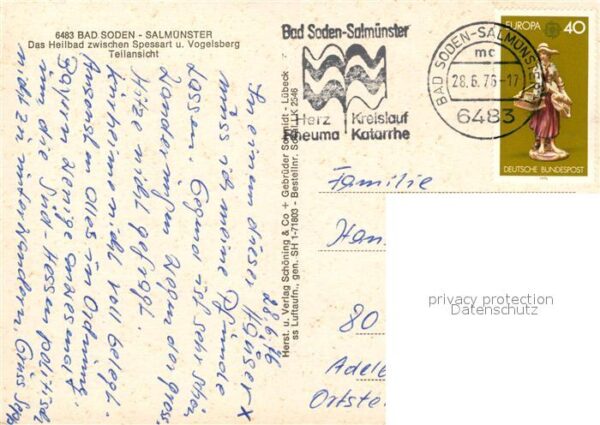 6483 BAD SODEN - SALMÜNSTER
Das Heilbad zwischen Spessart u. Vogelsberg
Teilansicht
28.6.76
In einem dieser Häuser x
muss ich meine Pfunde
lassen. Gegend ist sehr schön.
Wanderungen wegen der gross.
Hitze nicht gefragt.
Häuser nicht voll belegt.
Ansonsten Alles in Ordnung.
Bayern wenige anwesend
um die Süd-Hessen politisch
nicht zu unterwandern. Gruss Sepp
Herst. u. Verlag Schöning & Co + Gebrüder Schmidt · Lübeck
ss Luftaufn., gen. SH 1-71803 - Bestellnr. 2546
Bad Soden-Salmünster
Herz Kreislauf
Rheuma Katarrhe
BAD SODEN-SALMÜNSTER
mc
28.6.76-17
6483
EUROPA 40
DEUTSCHE BUNDESPOST
Familie
Han
80
Adel
Ortste
privacy protection
Datenschutz